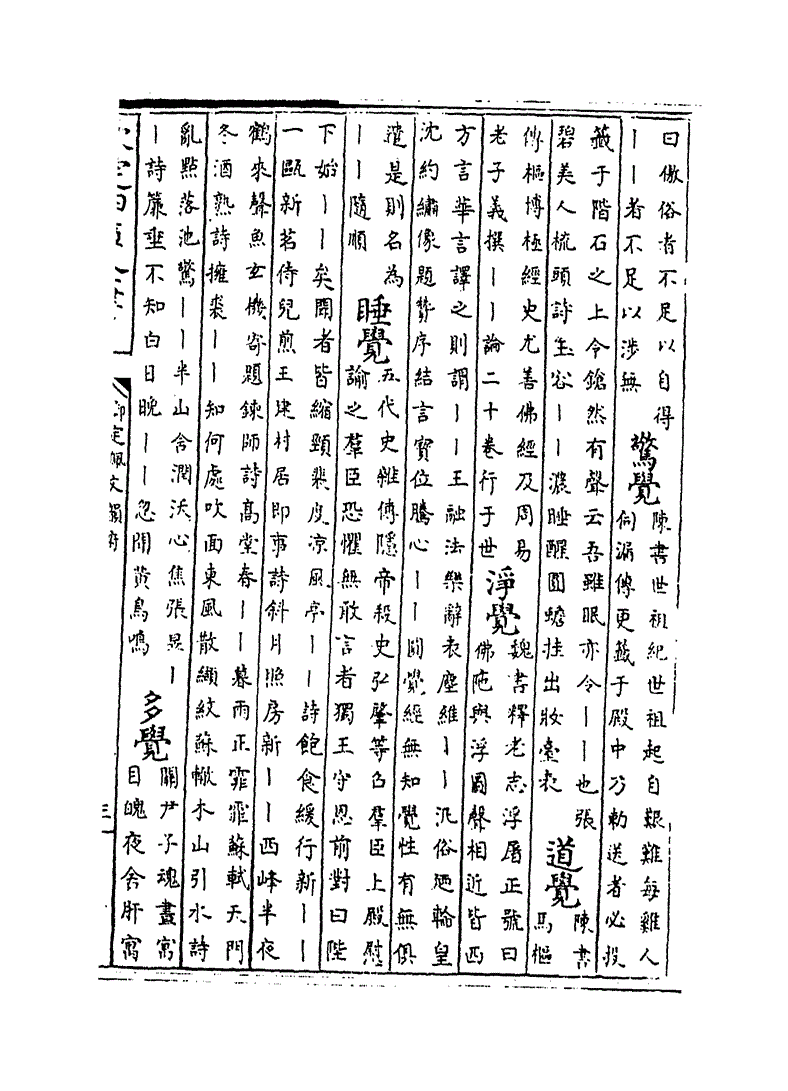 曰傲俗者不足以自得
丨丨者不足以涉無
驚覺
陳書世祖紀世祖起自艱難每雞人
伺漏傳更籤于殿中乃勅送者必投
籤于階石之上令鎗然有聲云吾雖眠亦令丨丨也張
碧美人梳頭詩玉容丨丨濃睡醒圓蟾挂出妝臺表
道覺
陳書
馬樞
傳樞博極經史尤善佛經及周易
老子義撰丨丨論二十卷行于世
淨覺
魏書釋老志浮屠正號曰
佛陁與浮圖聲相近皆西
方言華言譯之則謂丨丨王融法樂辭表塵維丨丨汎俗廼輪皇
沈約繡像題贊序結言寶位騰心丨丨圓覺經無知覺性有無俱
遣是則名為
丨丨隨順
睡覺
五代史雜傳隱帝殺史弘肇等召羣臣上殿慰
諭之羣臣恐懼無敢言者獨王守恩前對曰陛
下始丨丨矣聞者皆縮頸裴度凉風亭丨丨詩飽食緩行新丨丨
一甌新茗侍兒煎王建村居即事詩斜月照房新丨丨西峰半夜
鶴來聲魚玄機寄題鍊師詩高堂春丨丨暮雨正霏霏蘇軾天門
冬酒熟詩擁裘丨丨知何處吹面東風散纈紋蘇轍木山引水詩
亂點落池驚丨丨半山含潤沃心焦張昱丨
丨詩簾垂不知白日晚丨丨忽聞黃鳥鳴
多覺
關尹子魂晝寓
目魄夜舍肝寓
欽定四庫全書
御定佩文韻府
三